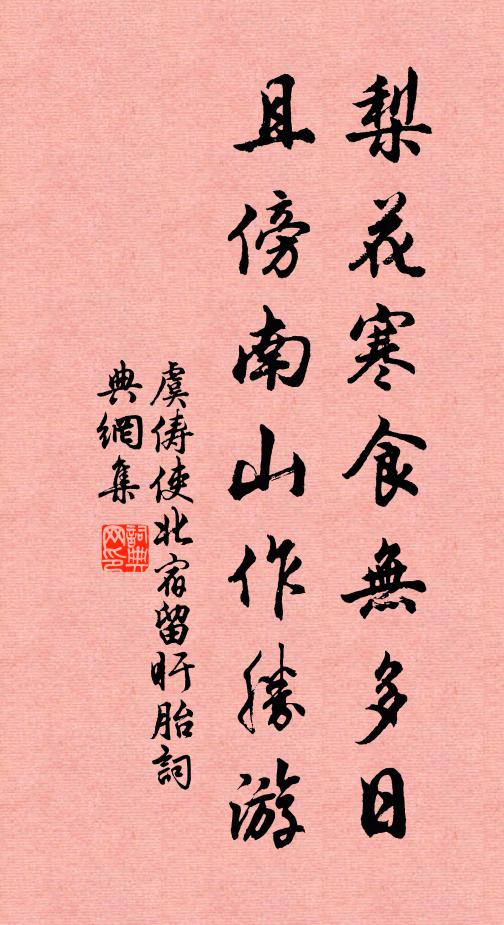 梨花寒食無多日
且傍南山作勝游
虞儔使北宿留盱胎詞
典網集
詞典
网印